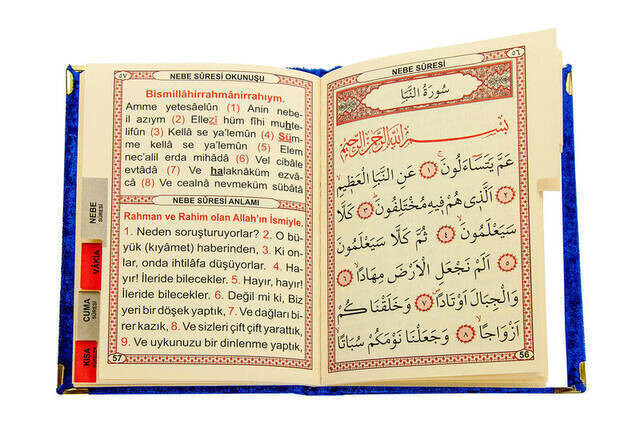 ٥٦
NEBE SÛRESİ
سُورَةُ النَّبَأِ
بِسْمِ اللهِ الرَّحْمٰنِ الرَّحِيمِ
عَمَّ يَتَسَاءَلُونَ ﴿١﴾ عَنِ النَّبَأِ الْعَظِيمِ
﴿٢﴾ اَلَّذِي هُمْ فِيهِ مُخْتَلِفُونَ ﴿٣﴾ كَلَّا
سَيَعْلَمُونَ ﴿٤﴾ ثُمَّ كَلَّا سَيَعْلَمُونَ
﴿٥﴾ اَلَمْ نَجْعَلِ الْاَرْضَ مِهَادًا ﴿٦﴾
وَالْجِبَالَ اَوْتَادًا ﴿٧﴾ وَخَلَقْنَاكُمْ
اَزْوَاجًا ﴿٨﴾ وَجَعَلْنَا نَوْمَكُمْ سُبَاتًا
56
٥٧
NEBE SÛRESİ OKUNUŞU
Bismillâhirrahmânirrahıym.
Amme yetesâelûn (1) Anin nebe-
il azıym (2) Ellezî hüm fîhi muhte-
lifûn (3) Kellâ se ya'lemûn (4) Süm-
me kellâ se ya'lemûn (5) Elem
nec'alil erda mihâdâ (6) Vel cibâle
evtâdâ (7) Ve halaknâküm ezvâ-
câ (8) Ve cealnâ nevmeküm sübâtâ
NEBE SÛRESİ ANLAMI
Rahman ve Rahim olan Allah'ın İsmiyle.
1. Neden soruşturuyorlar? 2. O bü-
yük (kıyâmet) haberinden, 3. Ki on-
lar, onda ihtilâfa düşüyorlar. 4. Ha-
yır! İleride bilecekler. 5. Hayır, hayır!
İleride bilecekler. 6. Değil mi ki, Biz
yeri bir döşek yaptık, 7. Ve dağları bi-
rer kazık, 8. Ve sizleri çift çift yarattık,
9. Ve uykunuzu bir dinlenme yaptık,
57
NEBE
SÛRESİ
VÂKIA
CUMA
SÛRESİ
KISA